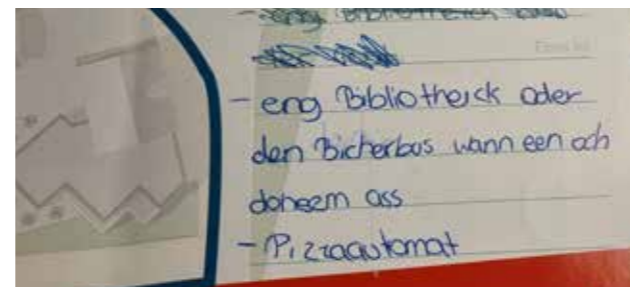 - eng Bibliotheick oder
den Bicherbus wann een och
doheem ass
- Pizzaautomat